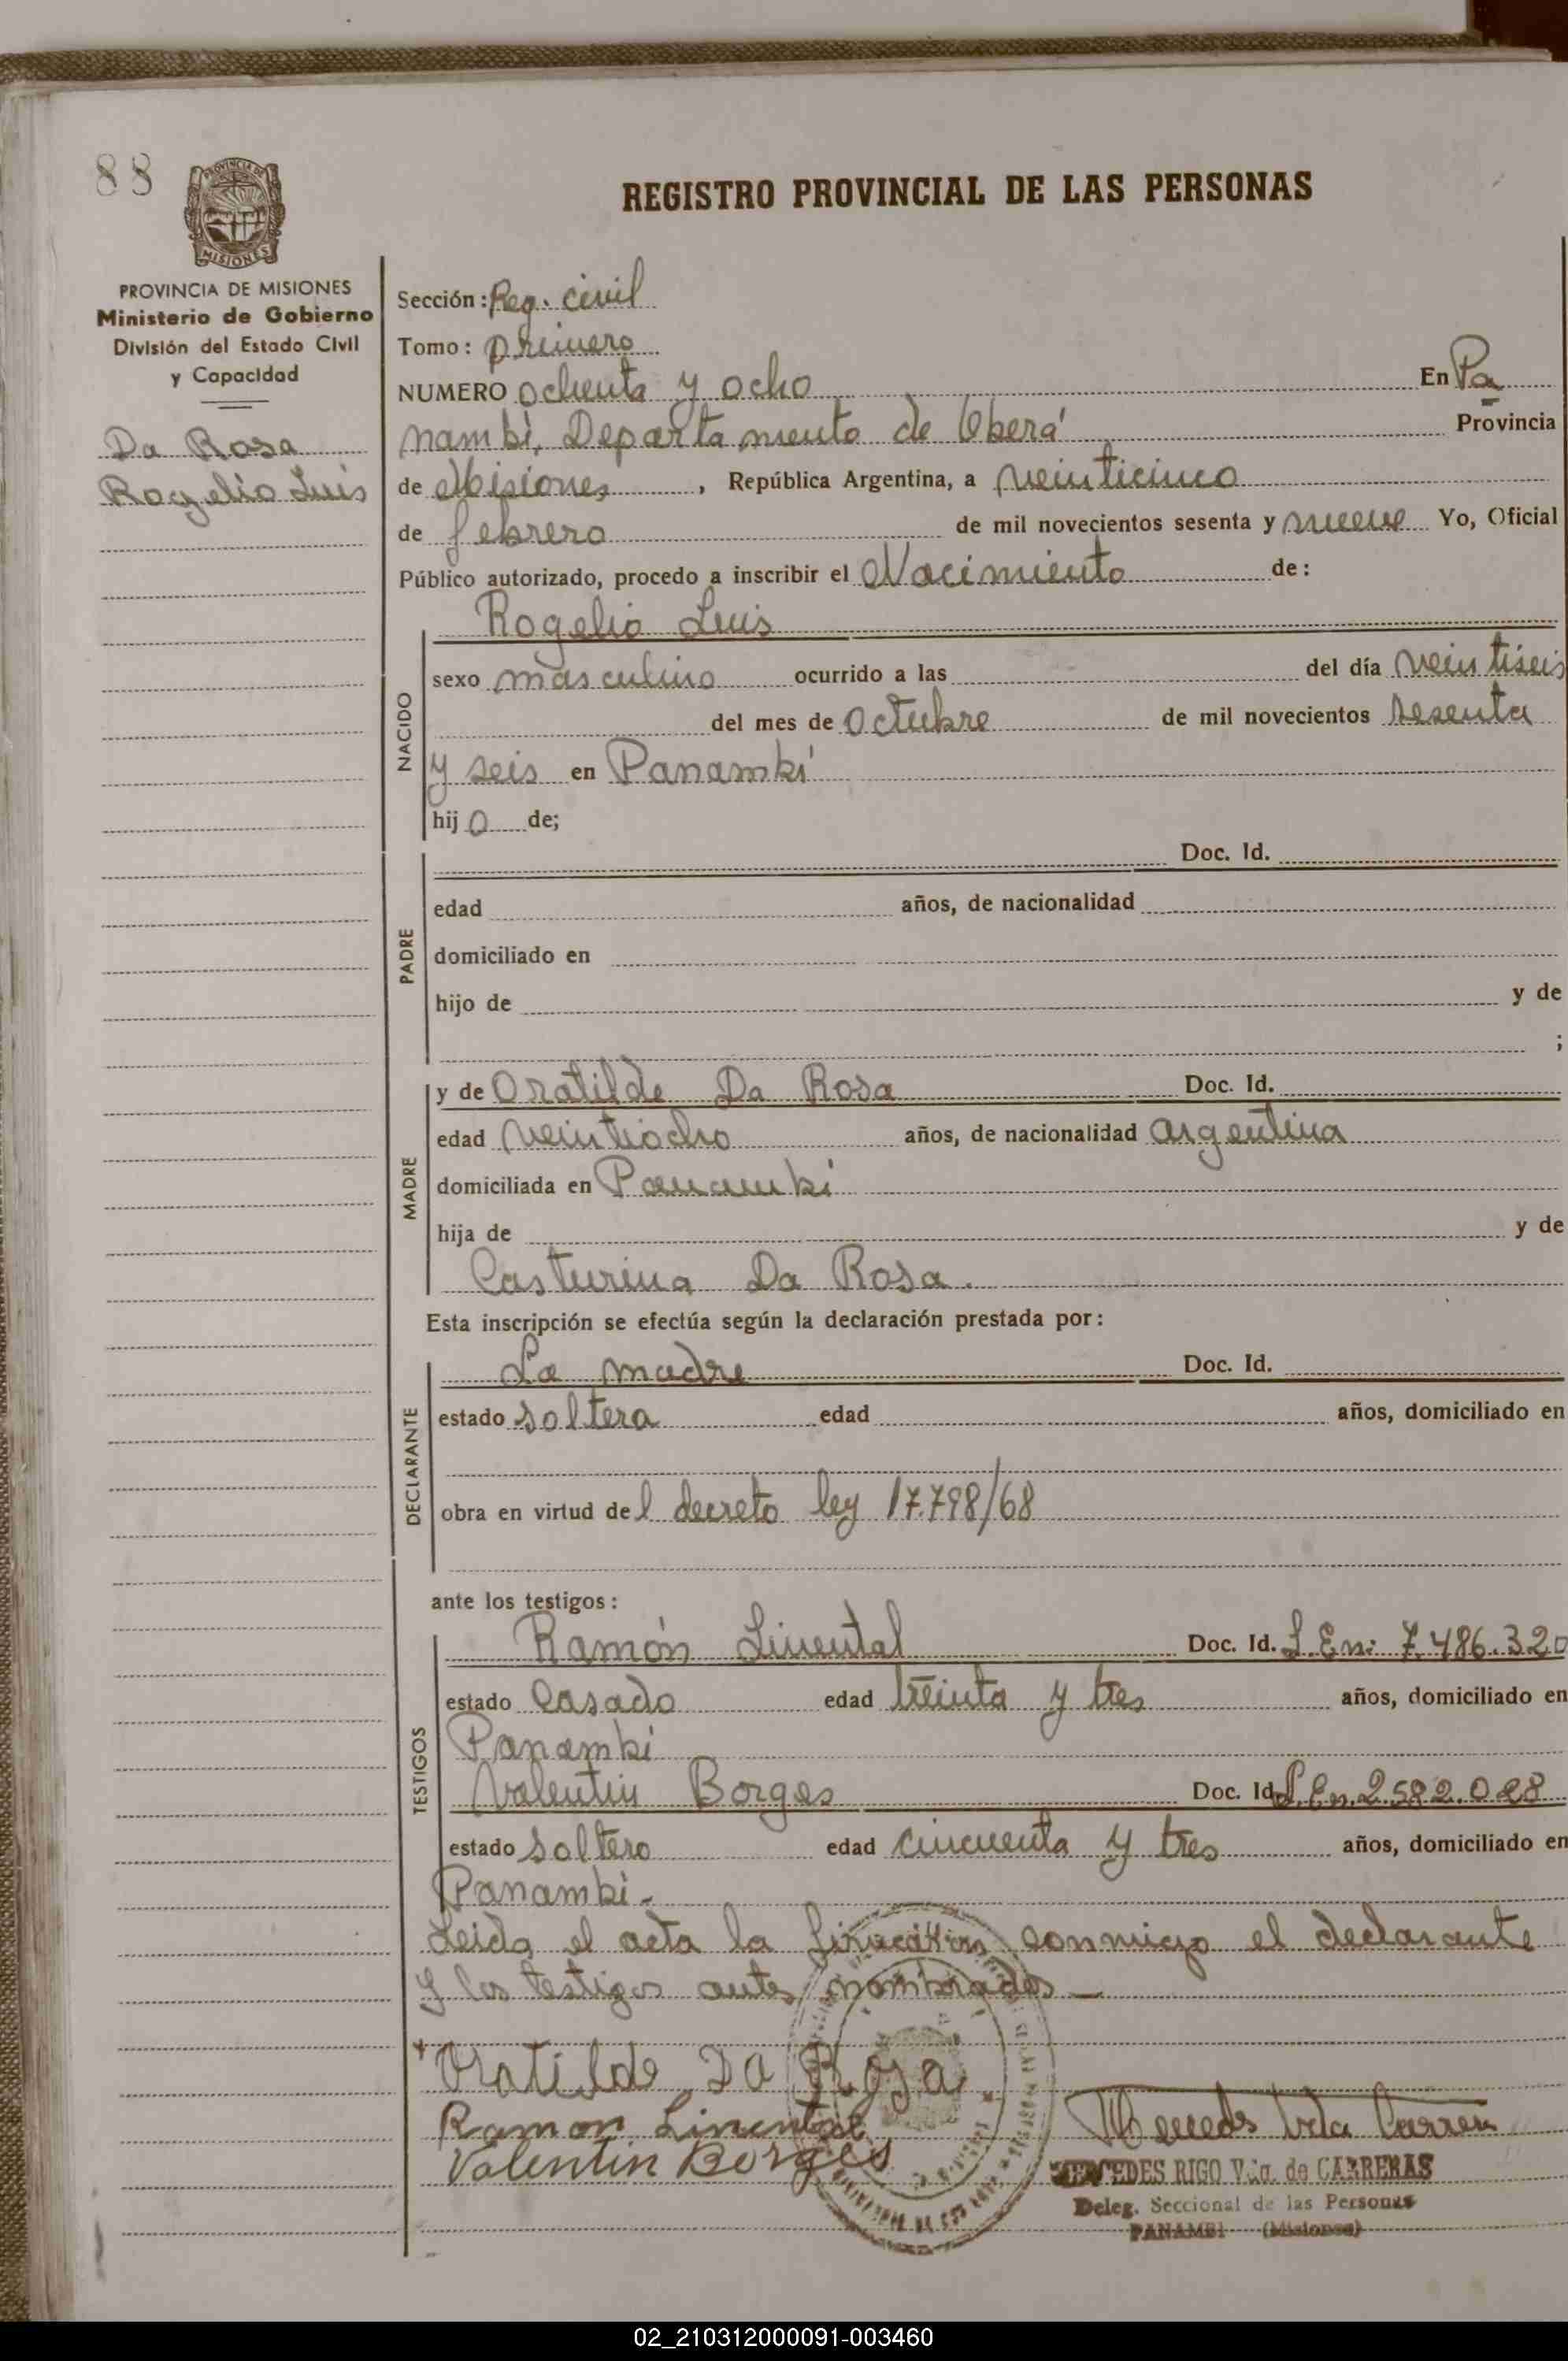 88
PROVINCIA DE
MISIONES
REGISTRO PROVINCIAL DE LAS PERSONAS
PROVINCIA DE MISIONES
Ministerio de Gobierno
División del Estado Civil
y Capacidad
Da Rosa
Rogelio Luis
Sección: Reg. civil
Tomo: primero
NUMERO ochenta y ocho En Pa
nambí, Departamento de Oberá Provincia
de Misiones, República Argentina, a veinticinco
de febrero de mil novecientos sesenta y nueve Yo, Oficial
Público autorizado, procedo a inscribir el Nacimiento de:
Rogelio Luis
NACIDO
sexo masculino ocurrido a las del día veintiseis
del mes de Octubre de mil novecientos sesenta
y seis en Panambí
hijo de;
PADRE
Doc. Id.
edad años, de nacionalidad
domiciliado en
hijo de y de
;
MADRE
y de Oratilde Da Rosa Doc. Id.
edad veintiocho años, de nacionalidad argentina
domiciliada en Panambí
hija de y de
Casturina Da Rosa.
Esta inscripción se efectúa según la declaración prestada por:
DECLARANTE
La madre Doc. Id.
estado soltera edad años, domiciliado en
obra en virtud del decreto ley 17.798/68
ante los testigos:
TESTIGOS
Ramón Linental Doc. Id. L.En: 7.486.320
estado casado edad treinta y tres años, domiciliado en
Panambí
Valentin Borges Doc. Id. L.En. 2.582.028
estado soltero edad cincuenta y tres años, domiciliado en
Panambí-
Leida el acta la conmigo el declarante
y los testigos antes nombrados-
Oratilde DA Rosa
Ramon Linental
Valentin Borges
Mercedes Vda Carreras
MERCEDES RIGO Vda. de CARRERAS
Deleg. Seccional de las Personas
PANAMBI (Misiones)
02_210312000091-003460